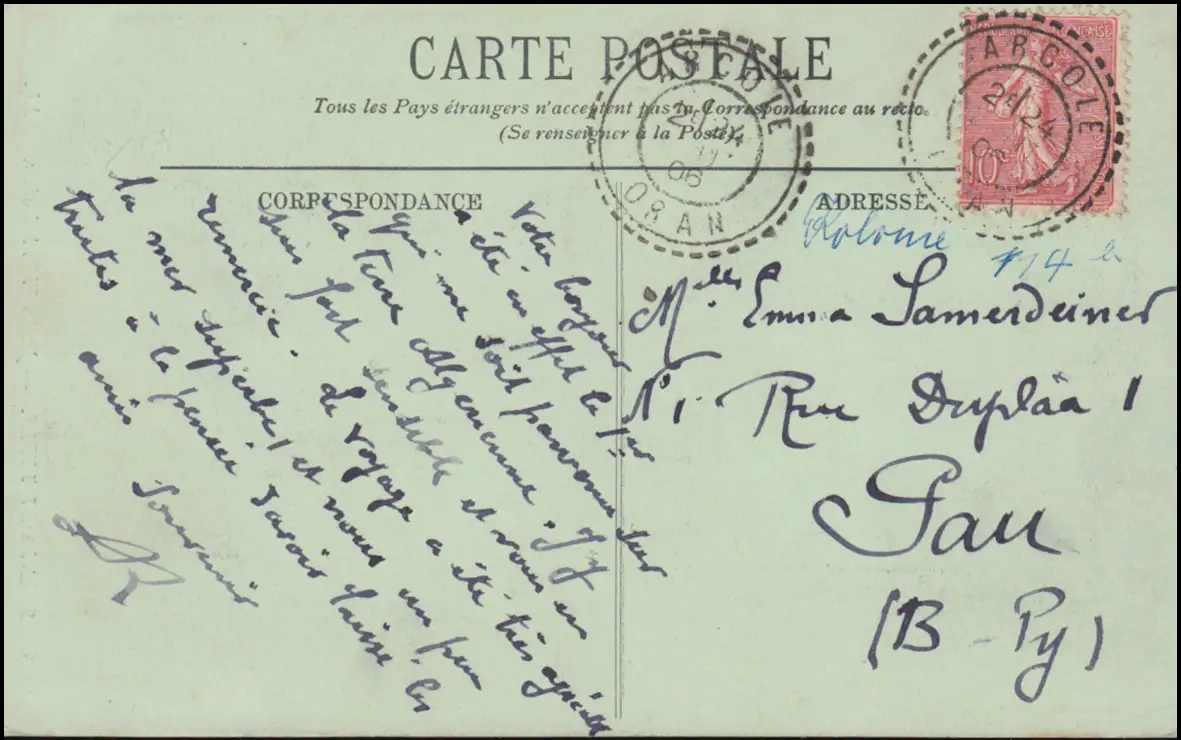 CARTE POSTALE
Tous les Pays étrangers n'acceptent pas la Correspondance au recto.
(Se renseigner à la Poste).
ARCOLE
24
06
ORAN
REPUBLIQUE FRANÇAISE
10c
ARCOLE
24
CORRESPONDANCE
Votre bonjour
a été en effet le 1er
qui me soit parvenu sur
la terre Algérienne. J'y
suis fort sensible et vous en
remercie. Le voyage a été très agréable
la mer superbe, et nous un peu
tristes à la pensée d'avoir laissé les
amis
Souvenir
ADRESSE
Melle Emma Lamerdeiner
N°1. Rue Duplàa 1
Pau
(B-Py)